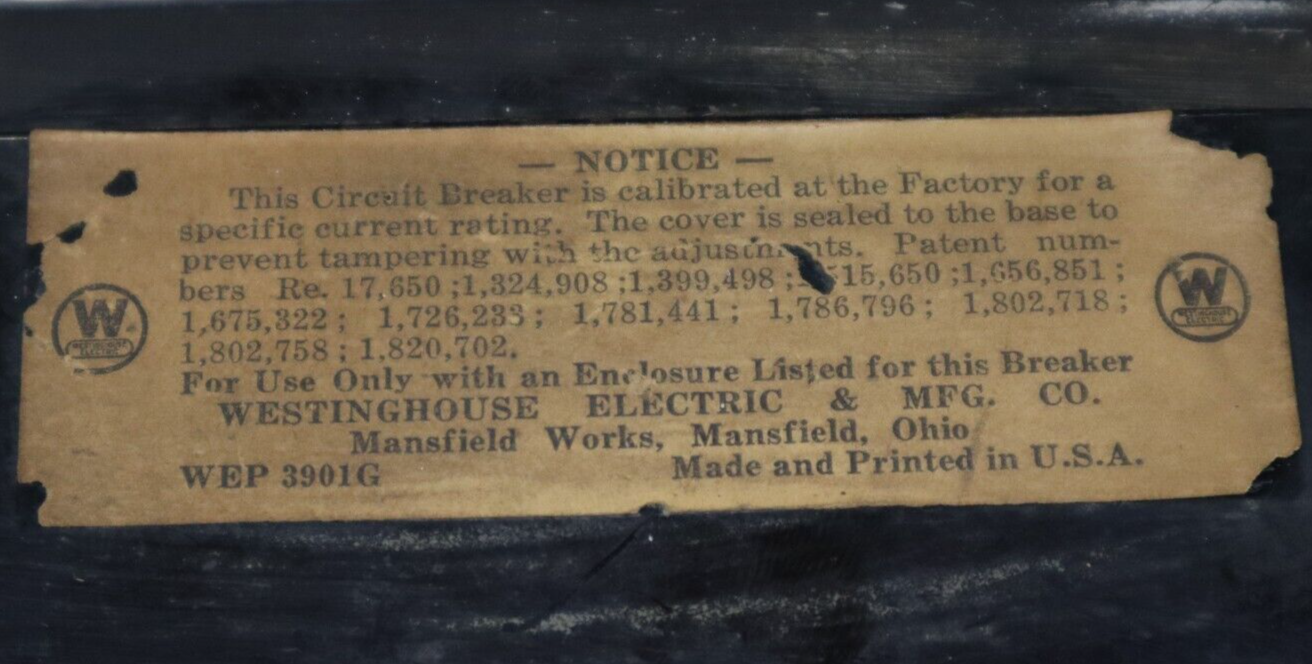 — NOTICE —
This Circuit Breaker is calibrated at the Factory for a
specific current rating. The cover is sealed to the base to
prevent tampering with the adjustments. Patent num-
bers Re. 17,650 ;1,324,908 ;1,399,498 ; 15,650 ;1,656,851 ;
1,675,322 ; 1,726,233 ; 1,781,441 ; 1,786,796 ; 1,802,718 ;
1,802,758 ; 1,820,702.
For Use Only with an Enclosure Listed for this Breaker
WESTINGHOUSE ELECTRIC & MFG. CO.
Mansfield Works, Mansfield, Ohio
WEP 3901G Made and Printed in U.S.A.
W
WESTINGHOUSE
ELECTRIC
W
WESTINGHOUSE
ELECTRIC